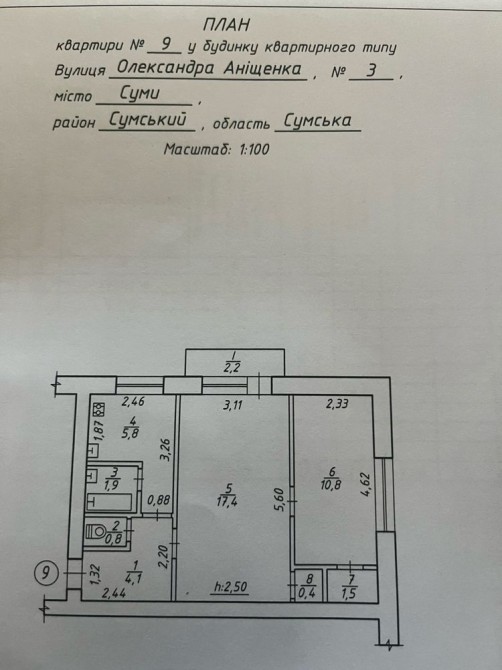 ПЛАН
квартири № 9 у будинку квартирного типу
Вулиця Олександра Аніщенка, № 3,
місто Суми,
район Сумський, область Сумська
Масштаб: 1:100
I
2,2
2,46
3,11
2,33
1,87
4
5,8
3,26
3
1,9
0,88
5
17,4
5,60
6
10,8
4,62
2
0,8
2,20
9
1,32
1
4,1
2,44
h:2,50
8
0,4
7
1,5